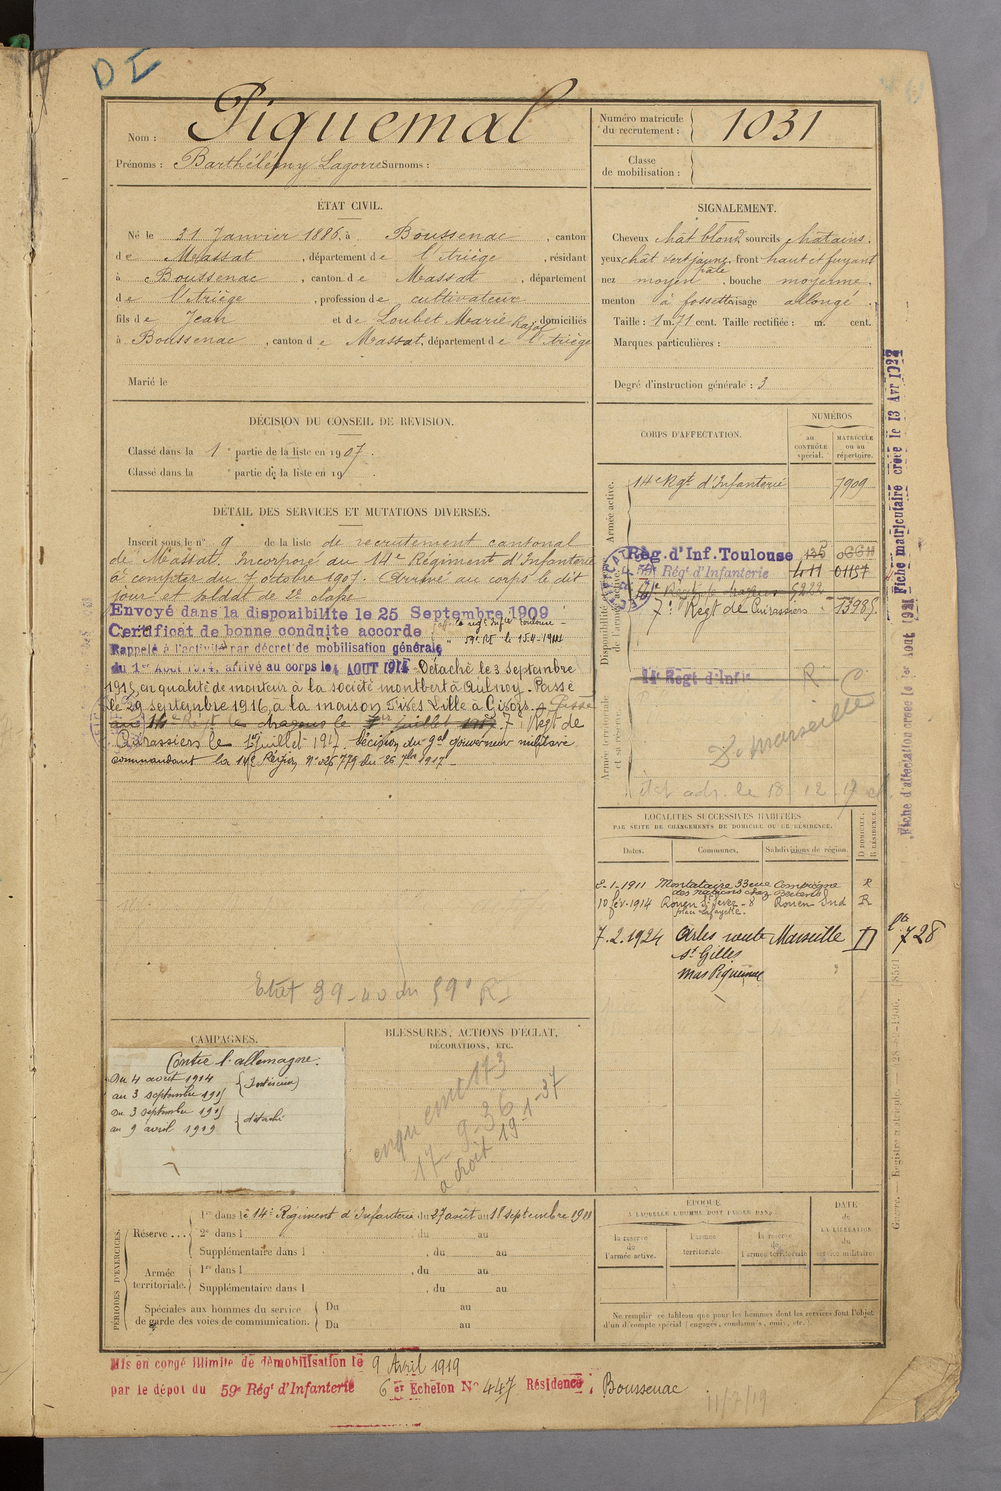 DI
Nom : Piquemal
Prénoms : Barthélémy Lagorre Surnoms :
Numéro matricule du recrutement : 1031
Classe de mobilisation :
ÉTAT CIVIL.
Né le 31 Janvier 1886, à Boussenac, canton
de Massat, département de l'Ariège, résidant
à Boussenac, canton de Massat, département
de l'Ariège, profession de cultivateur
fils de Jean et de Loubet Marie Rajol domiciliés
à Boussenac, canton de Massat, département de l'Ariège
Marié le
SIGNALEMENT.
Cheveux chât blond, sourcils châtains,
yeux chât vert jaune pâle, front haut et fuyant
nez moyen, bouche moyenne,
menton à fossette visage allongé.
Taille : 1 m. 71 cent. Taille rectifiée : m. cent.
Marques particulières :
Degré d'instruction générale : 3
DÉCISION DU CONSEIL DE REVISION.
Classé dans la 1e partie de la liste en 1907.
Classé dans la e partie de la liste en 19
DÉTAIL DES SERVICES ET MUTATIONS DIVERSES.
Inscrit sous le n° 9 de la liste de recrutement cantonal
de Massat. Incorporé au 14e Régiment d'Infanterie
à compter du 7 octobre 1907. Arrivé au corps le dit
jour et soldat de 2e classe
Envoyé dans la disponibilité le 25 Septembre 1909
Certificat de bonne conduite accordé
Rappelé à l'activité par décret de mobilisation générale
du 1er Août 1914, arrivé au corps le 4 AOUT 1914 Détaché le 3 septembre
1915, en qualité de monteur à la société montbert à Aulnoy. Passé
le 29 septembre 1916, à la maison Fives Lille à Gisors. Passé
au 14e Régt de dragons le 1er juillet 1917. 7e Régt de
Cuirassiers le 1er juillet 1917. Décision du gal gouverneur militaire
commandant la 14e Région N° 026 779 du 26 7bre 1917
Etat 39-40 du 59e RI
CORPS D'AFFECTATION.
NUMÉROS
au CONTRÔLE spécial.
MATRICULE ou au répertoire.
Armée active.
14e Rgt d'Infanterie 7909
Disponibilité et réserve de l'armée active.
Rég. d'Inf. Toulouse
59e Régt d'Infanterie 411 01157
7e Régt de Cuirassiers
Armée territoriale et sa réserve.
14e Regt d'Infie
R C
D. Marseille
Fiche matriculaire créée le 13 Avr 1922
Fiche d'affectation créée le 1er Aout 1921
LOCALITÉS SUCCESSIVES HABITÉES
PAR SUITE DE CHANGEMENTS DE DOMICILE OU DE RÉSIDENCE.
Dates. Communes. Subdivisions de région. D DOMICILE. R RÉSIDENCE.
8-1-1911 Montataire 33 rue Compiègne R
10 fév. 1914 Rouen St Sever - 8 Rouen Sud R
place Lafayette.
7.2.1924 Arles route Marseille D
St Gilles
mas Piquemal
728
CAMPAGNES.
Contre l'allemagne.
Du 4 août 1914
au 3 septembre 1915 (Intérieur)
Du 3 septembre 1915
au 9 avril 1919 détaché
BLESSURES, ACTIONS D'ÉCLAT, DÉCORATIONS, ETC.
17-9-36
a droit 19-1-37
PÉRIODES D'EXERCICES.
Réserve... 1re dans le 14e Régiment d'Infanterie du 27 août au 18 septembre 1911
2e dans l , du au
Supplémentaire dans l , du au
Armée territoriale. 1re dans l , du au
Supplémentaire dans l , du au
Spéciales aux hommes du service de garde des voies de communication. Du au
Du au
ÉPOQUE
À LAQUELLE L'HOMME DOIT PASSER DANS
la réserve de l'armée active.
l'armée territoriale.
la réserve de l'armée territoriale
DATE de LA LIBÉRATION du service militaire.
Ne remplir ce tableau que pour les hommes dont les services font l'objet
d'un décompte spécial (engagés, condamnés, omis, etc.).
Mis en congé illimité de démobilisation le 9 Avril 1919
par le dépôt du 59e Rég' d'Infanterie 6 er Echelon N° 447 Résidence : Boussenac
11/7/19